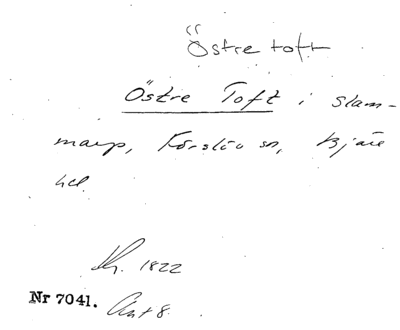 Östre toft
Östre Toft i Slam-
marp, Förslöv sn, Bjäre
hd.
Kr. 1822
Nr 7041. Akt 8.